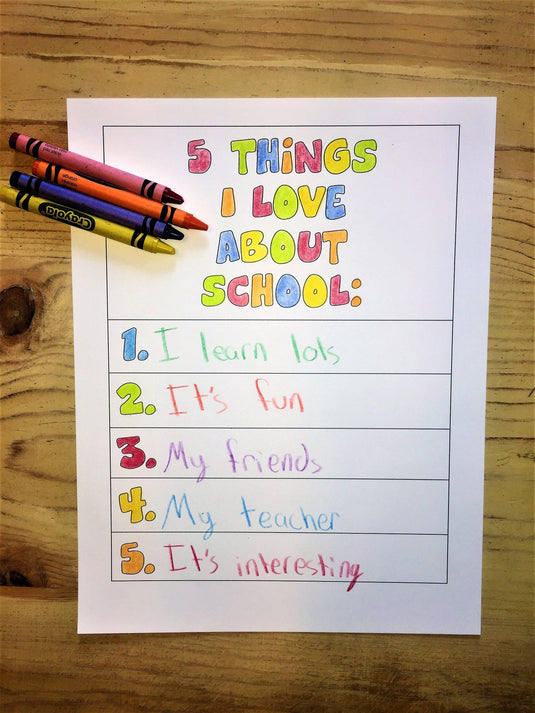 5 THiNGS
I LOVE
ABOUT
SCHOOL:
1. I learn lots
2. It's fun
3. My friends
4. My teacher
5. It's interesting
Crayola